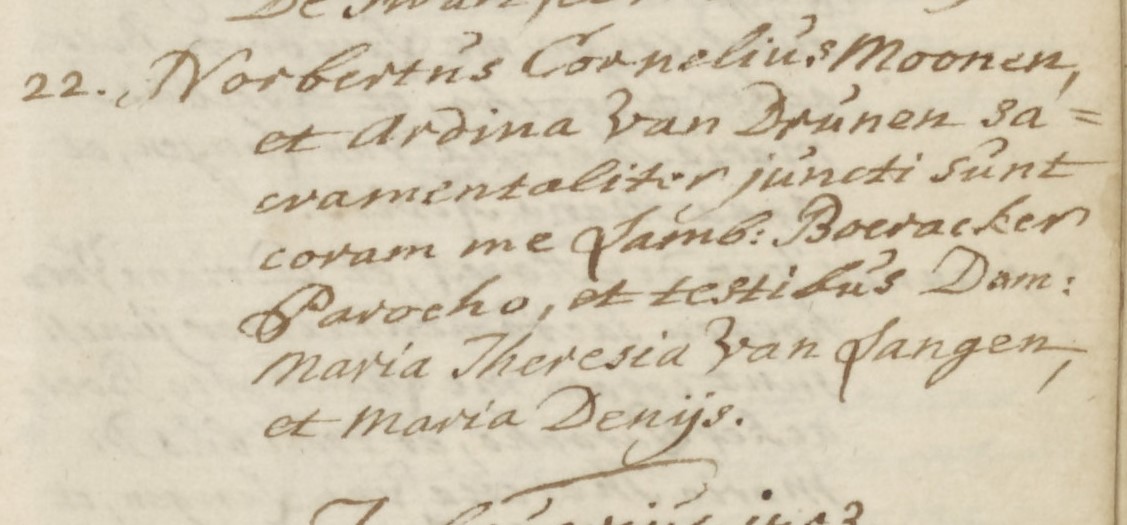 22. Norbertus Cornelius Moonen,
et Ardina van Drunen sa=
cramentaliter juncti sunt
coram me Lamb: Boeracker
Parocho, et testibus Dom:
Maria Theresia van Langen,
et Maria Denijs.